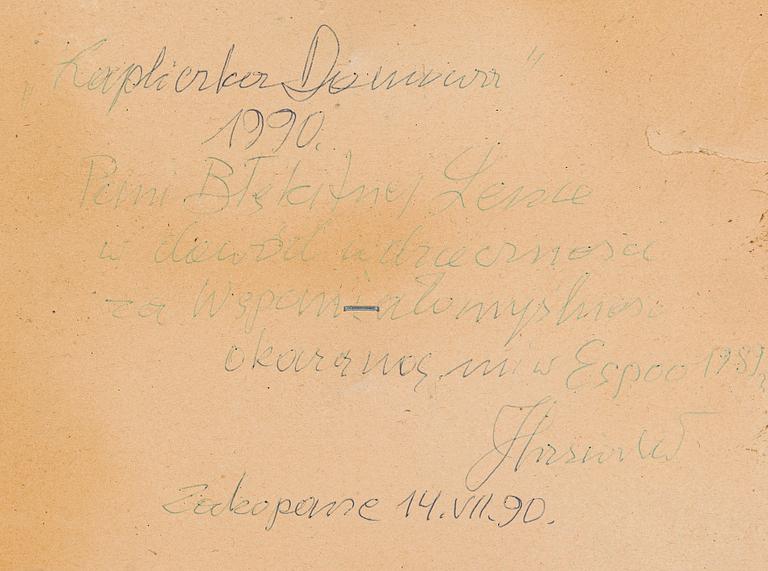 „Kapliczka Domowa"
1990.
Pani Błękitnej Lence
w dowód wdzięczności
za Wspaniałomyślność
okazaną mi w Espoo 1989r
Zakopane 14.VII.90.